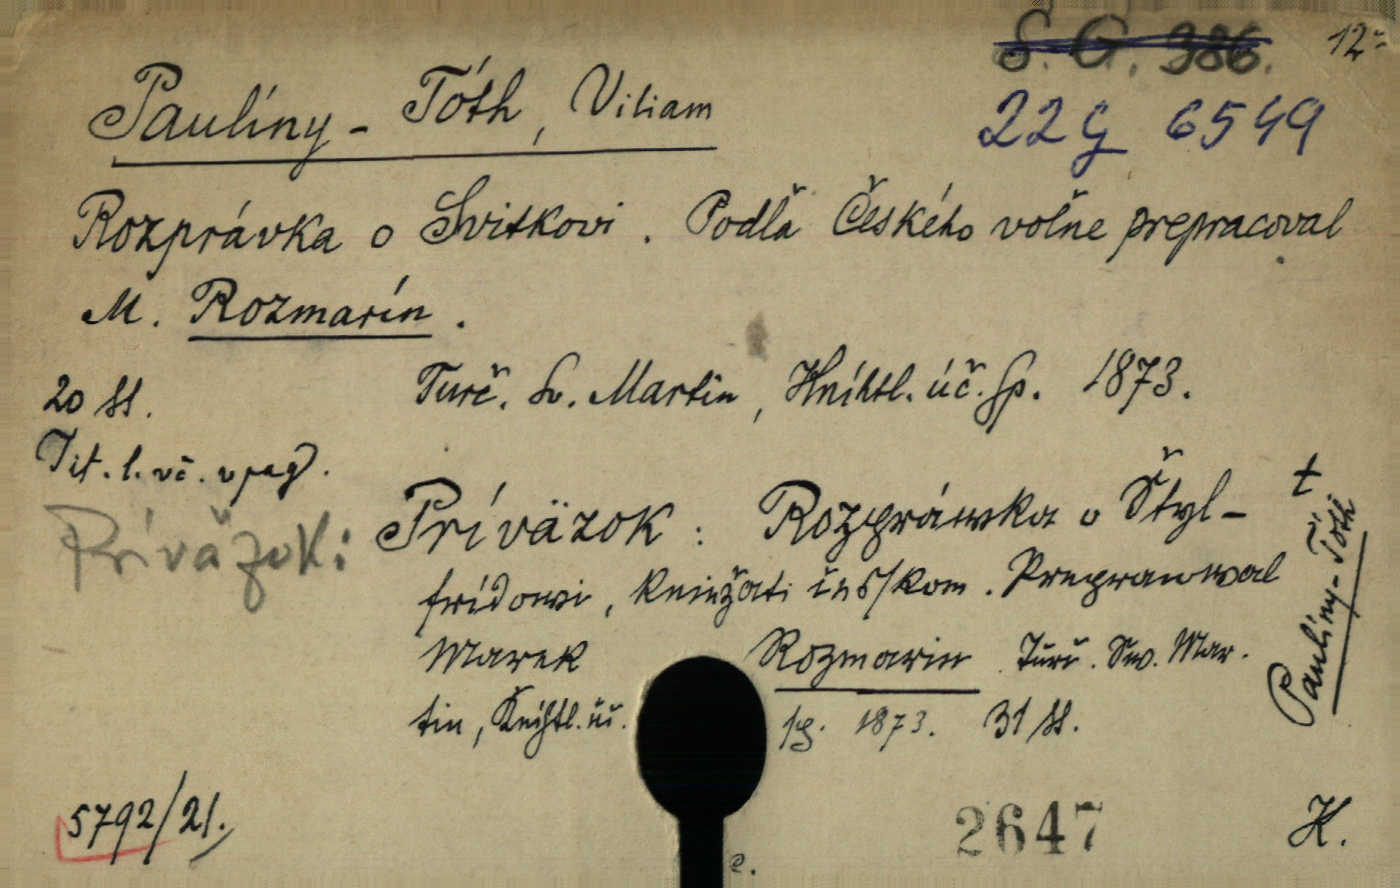 S. G. 386.
12°
22 G 6549
Paulíny-Tóth, Viliam
Rozprávka o Svitkovi. Podľa Českého voľne prepracoval
M. Rozmarín.
20 ss.
Turč. Sv. Martin, Kníhtl. úč. sp. 1873.
Tit. l. vč. v pag.
Príväzok:
Príväzok: Rozpráwka o Štyl-
frídowi, kniežati českom. Prepracowal
Marek Rozmarin. Turč. Sw. Mar-
tin, Kníhtl. úč. sp. 1873. 31 ss.
†
Paulíny-Tóth
5792/21.
2647
H.
e.